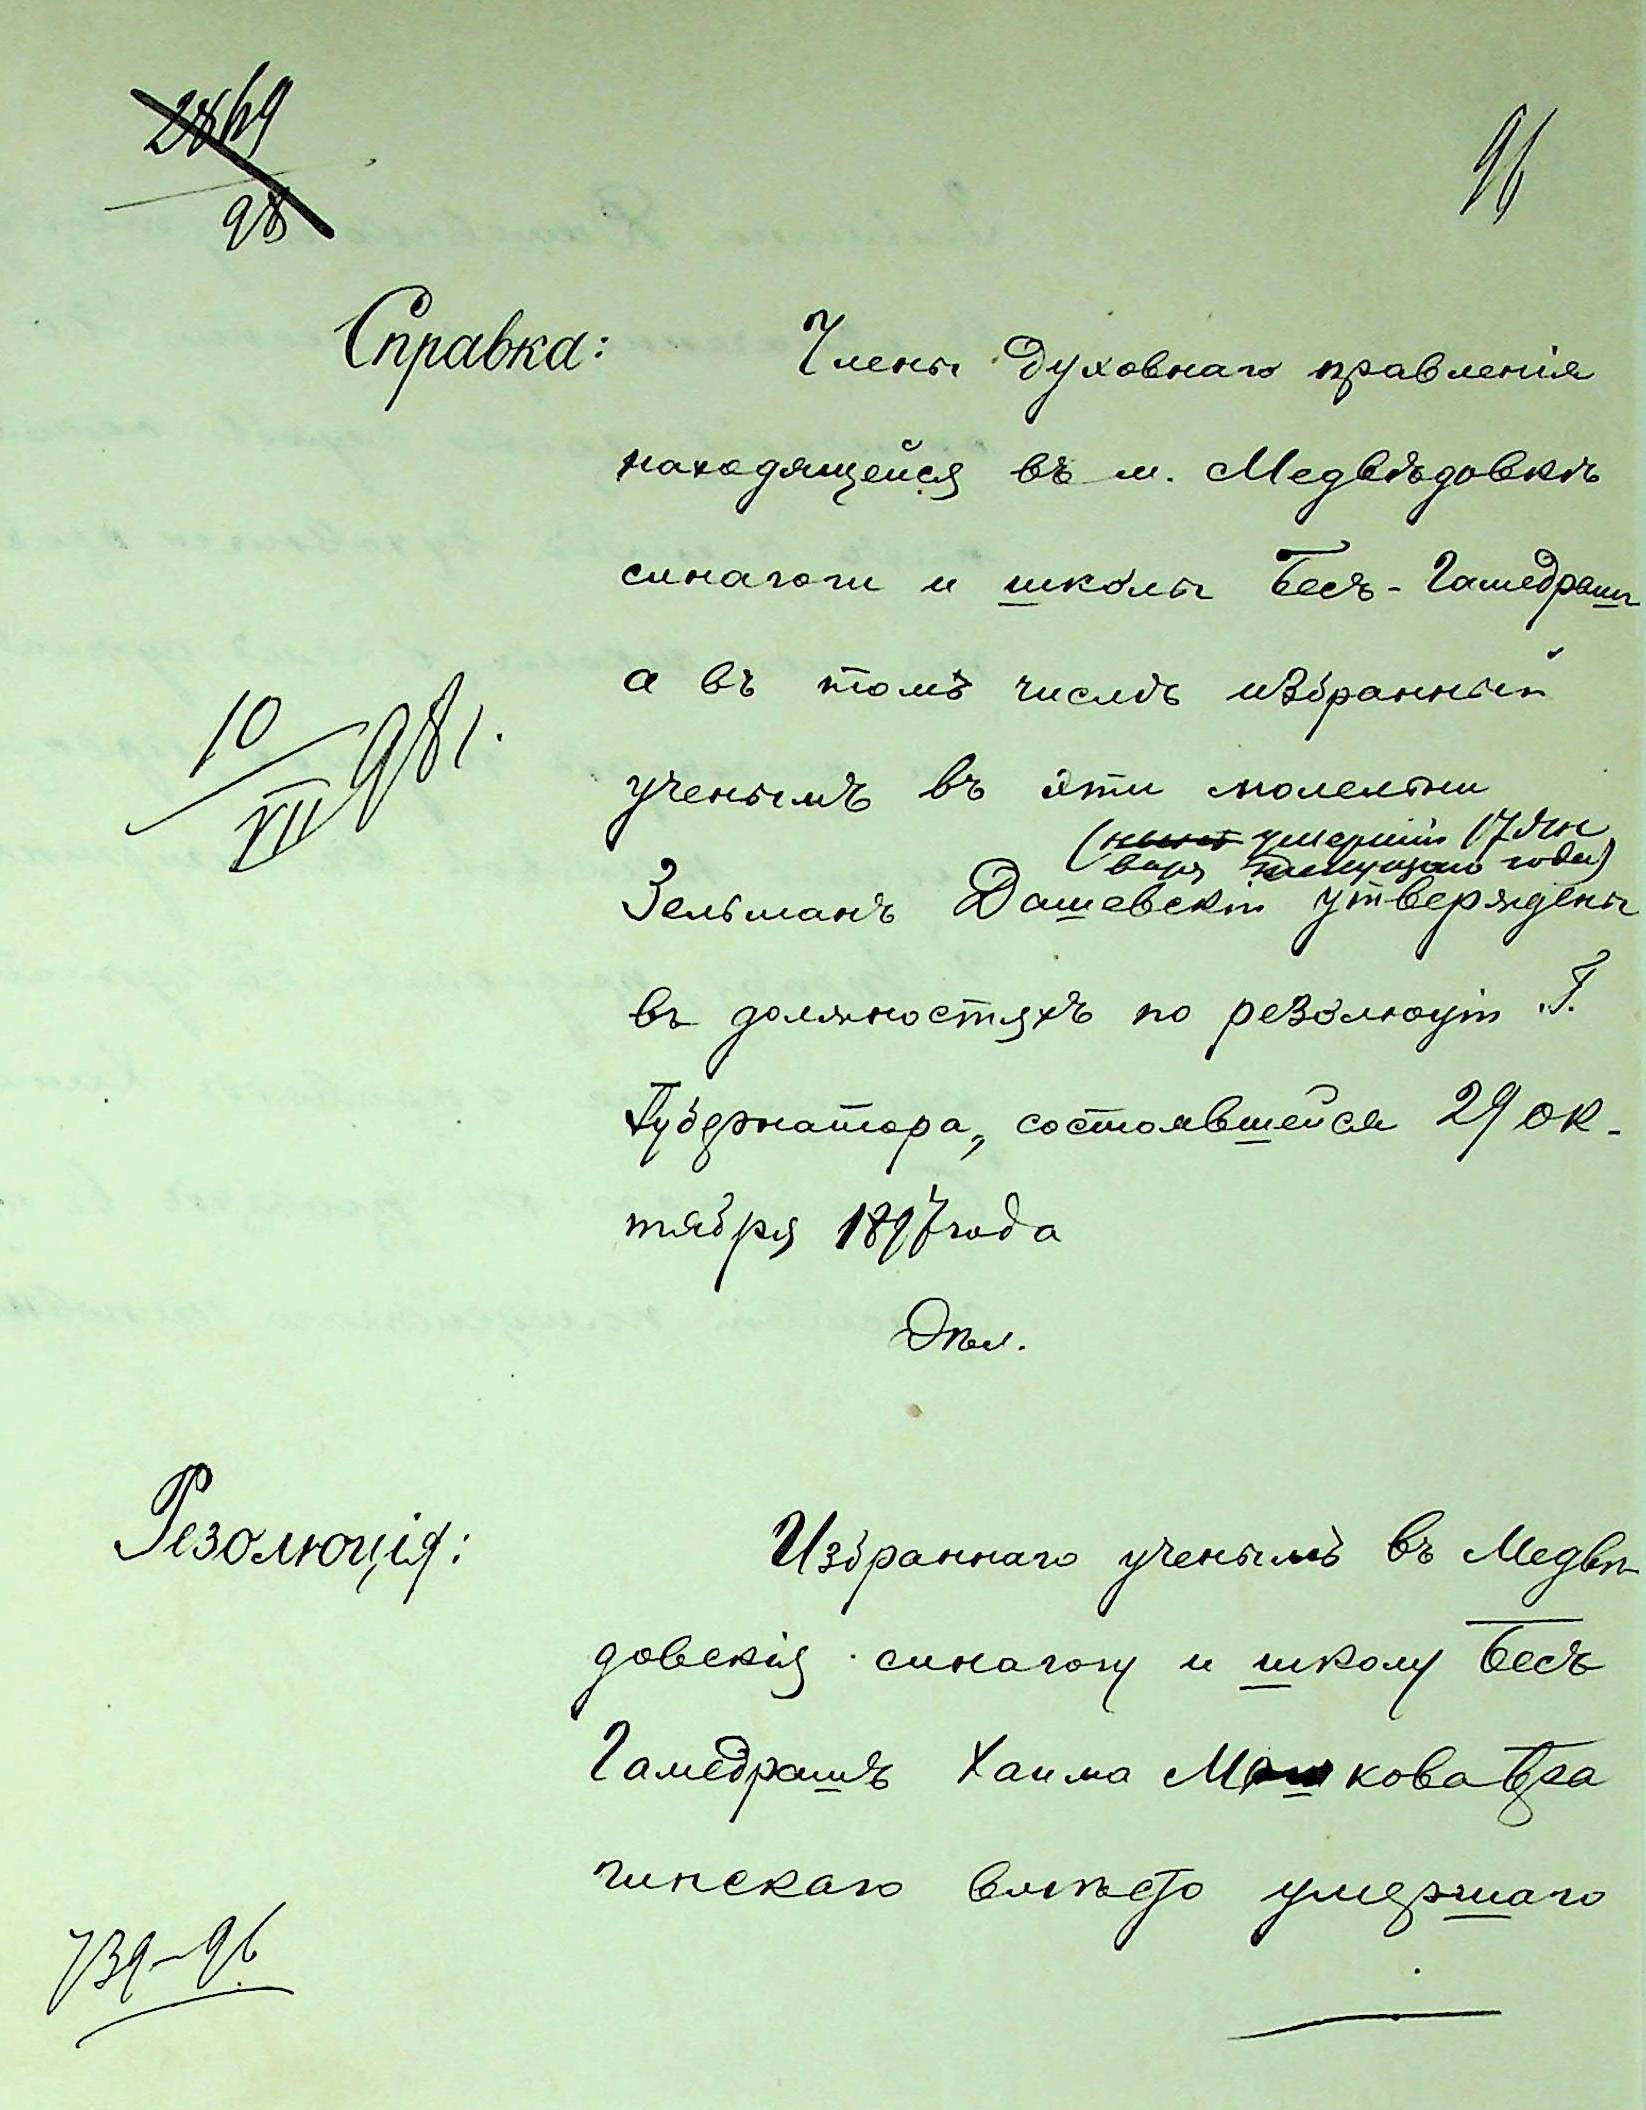 2869
98
96
Справка:
Члены духовнаго правленія
находящейся въ м. Медвѣдовкѣ
синагоги и школы Бесъ-Гамедрашъ
а въ томъ числѣ избранный
ученымъ въ эти молельни
(нынѣ умершій 17 Ян
варя текущаго года)
Зельманъ Дашевскій утверждены
въ должностяхъ по резолюціи Г.
Губернатора, состоявшейся 29 ок-
тября 1897 года
10/XII 98 г.
Резолюція:
Избраннаго ученымъ въ Медвѣ
довскія синагогу и школу Бесъ
Гамедрашъ Хаима Мошкова
гинскаго вмѣсто умершаго
739-96